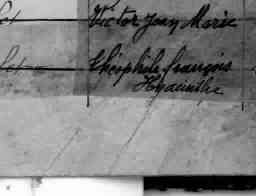 Victor Jean Marie
Théophile François
Hyacinthe